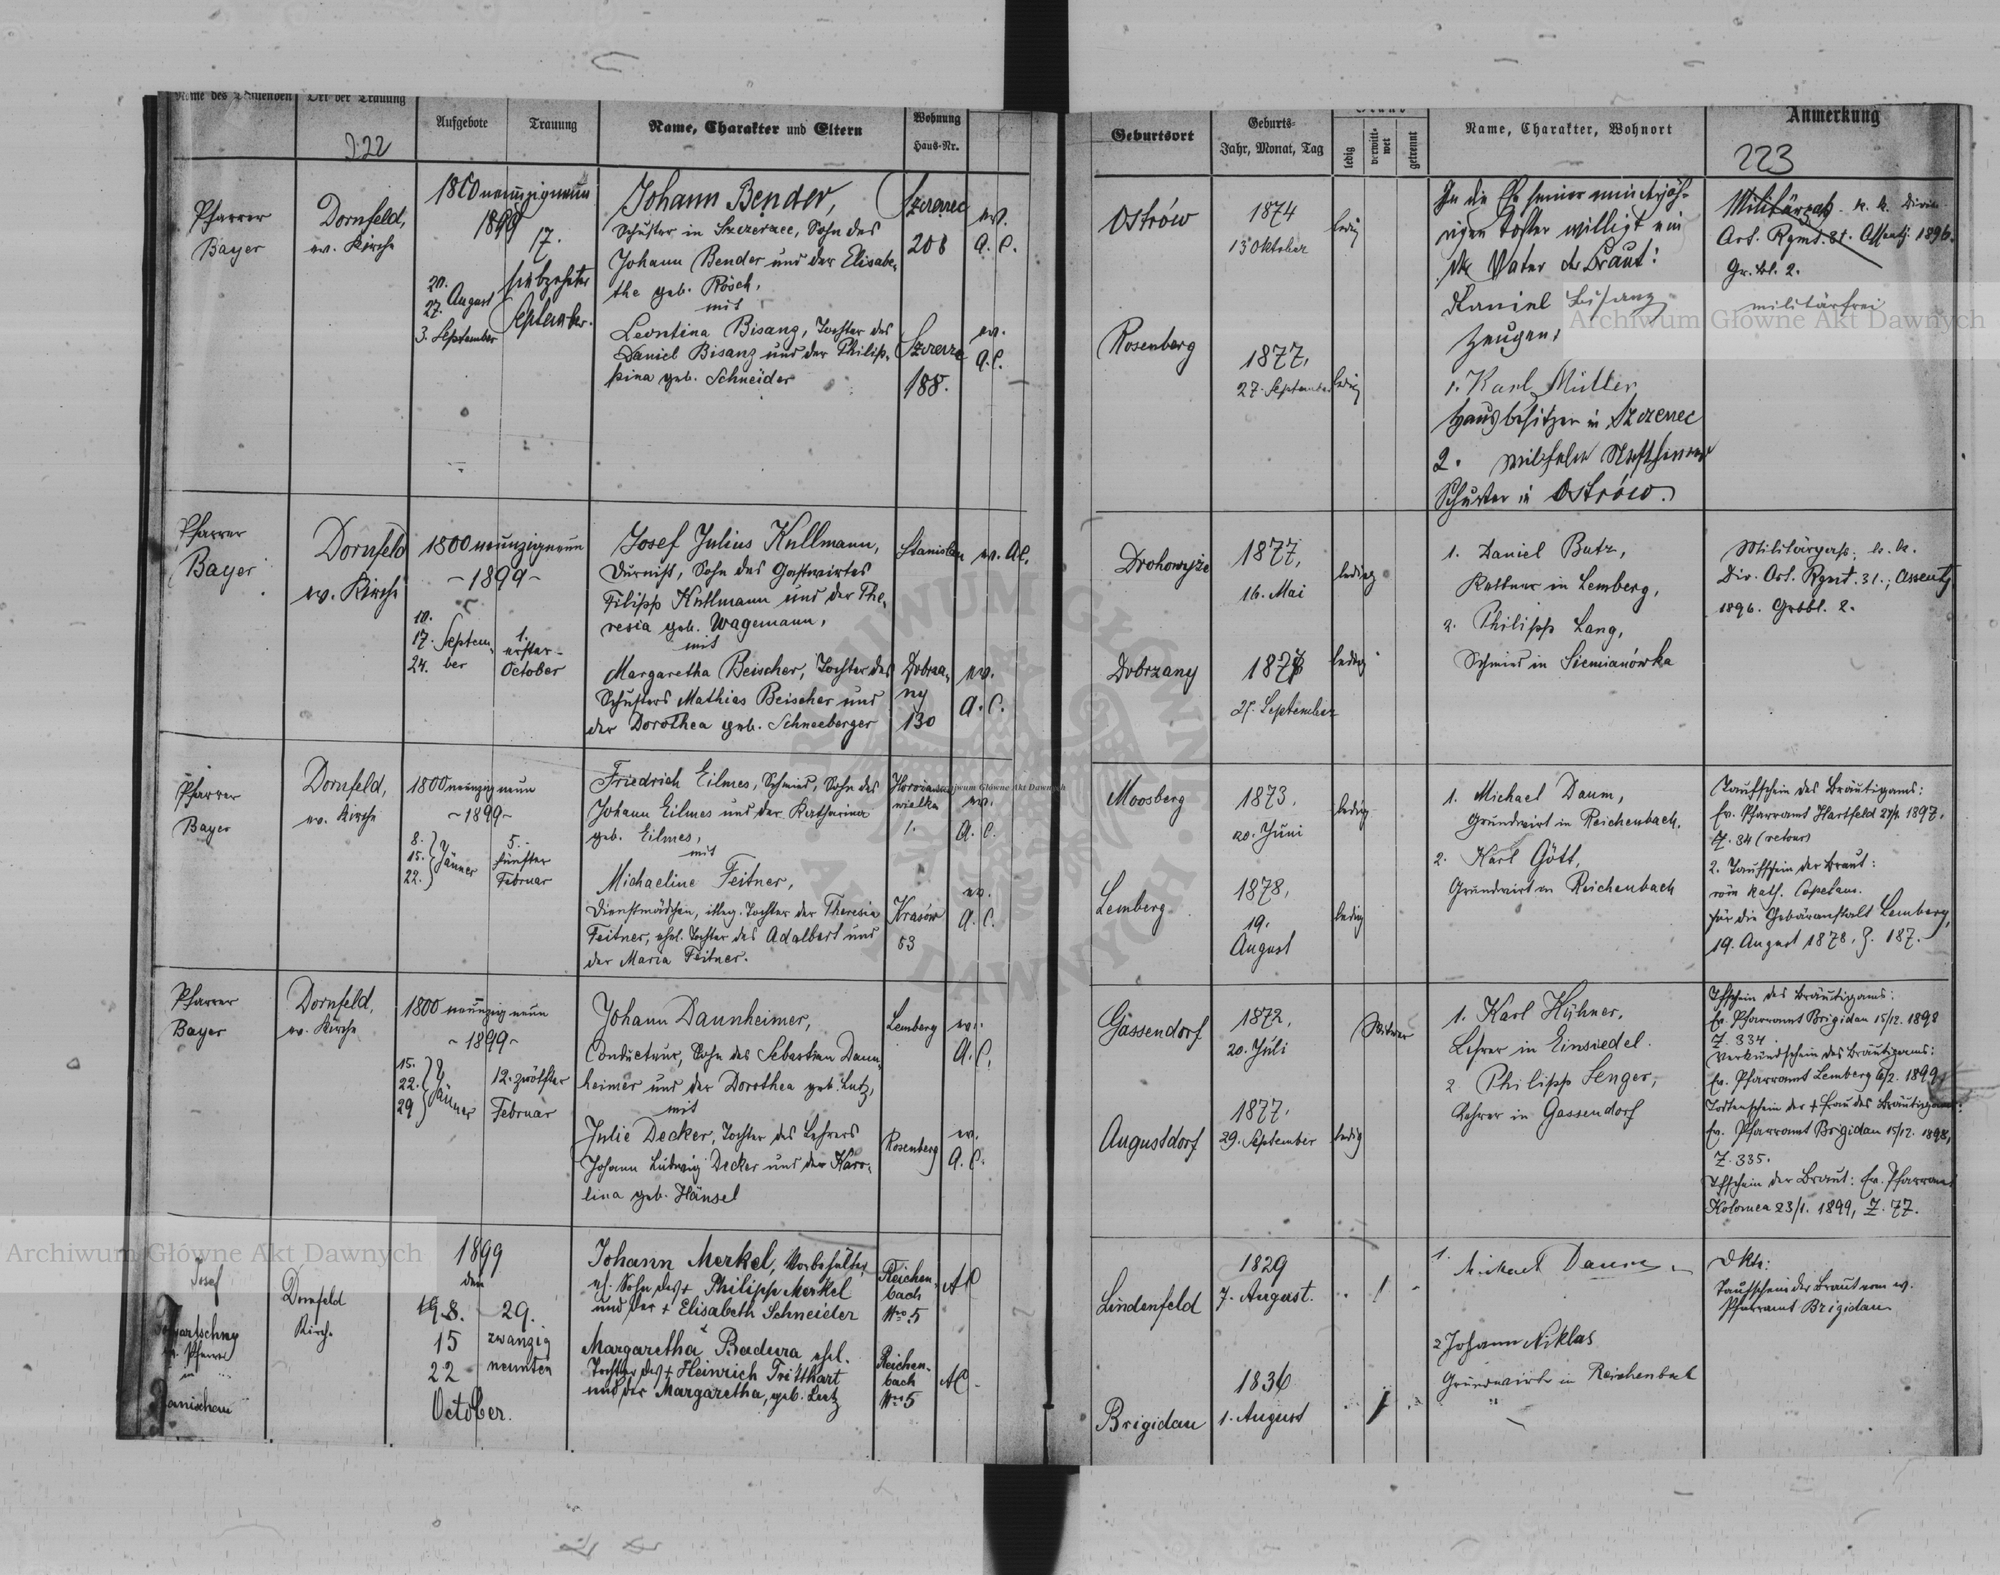 Name des Trauenden
Ort der Trauung
222
Aufgebote
Trauung
Name, Charakter und Eltern
Wohnung
Haus-Nr.
Pfarrer
Bayer
Dornfeld,
ev. Kirche
1800neunzigneun
1899
20.
27. August
3. September
17.
siebzehnter
September.
Johann Bender,
Schuster in Szczerzec, Sohn des
Johann Bender und der Elisabe-
the geb. Rösch,
mit
Leontina Bisanz, Tochter des
Daniel Bisanz und der Philip-
pina geb. Schneider
Szczerzec
208
Szczerzec
188.
ev.
A. C.
ev.
A. C.
Pfarrer
Bayer
Dornfeld
ev. Kirche
1800neunzigneun
~1899~
10.
17. Septem-
24. ber
1.
erster
October
Josef Julius Kullmann,
Sohn des Gastwirtes
Filipp Kullmann und der The-
resia geb. Wagemann,
mit
Margaretha Beischer, Tochter des
Schusters Mathias Beischer und
der Dorothea geb. Schneeberger
Stanislau
Dobrza-
ny
130
ev. A.C.
ev.
A. C.
Pfarrer
Bayer
Dornfeld,
ev. Kirche
1800neunzigneun
~1899~
8.
15. Jänner
22.
5.
fünfter
Februar
Friedrich Eilmes, Schmied, Sohn des
Johann Eilmes und der Katharina
geb. Eilmes,
mit
Michaeline Feitner,
Dienstmädchen, illeg. Tochter der Theresia
Feitner, ehel. Tochter des Adalbert und
der Maria Feitner.
wielka
1.
Krasów
53
ev.
A. C.
ev.
A. C.
Pfarrer
Bayer
Dornfeld,
ev. Kirche
1800neunzigneun
~1899~
15.
22. Jänner
29
12. zwölfter
Februar
Johann Daunheimer,
Conducteur, Sohn des Sebastian Daun-
heimer und der Dorothea geb. Lutz,
mit
Julie Decker, Tochter des Lehrers
Johann Ludwig Decker und der Karo-
lina geb. Hänsel
Lemberg
Rosenberg
ev.
A. C.
ev.
A. C.
Josef
ev. Pfarrer
in
Dornfeld
Kirche
1899
den
8.
15
22
October.
29.
zwanzig
neunten
Johann Merkel,
Sohn des + Philipp Merkel
und der + Elisabeth Schneider
Margaretha Badura ehel.
Tochter des + Heinrich Tritthart
und der Margaretha, geb. Lutz
Reichen-
bach
Nro 5
Reichen-
bach
Nro 5
AC
AC
Geburtsort
Geburts-
Jahr, Monat, Tag
Stand
ledig
verwit-
wet
getrennt
Name, Charakter, Wohnort
Anmerkung
223
Ostrów
1874
13 Oktober
ledig
Rosenberg
1877,
27. September
ledig
In die Ehe seiner minderjäh-
rigen Tochter willigt ein
der Vater der Braut:
Daniel Bisanz
Zeugen:
1. Karl Müller,
Hausbesitzer in Szczerzec
2. Wilhelm
Schuster in Ostrów.
Militärpaß k. k. Divis.
Art. Rgmt. 31. Assentj. 1896.
Gr. bl. 2.
militärfrei
Drohowyże
1877,
16. Mai
ledig
Dobrzany
21. September
ledig
1. Daniel Butz,
in Lemberg,
2. Philipp Lang,
Schmied in Siemianówka
Militärpaß; k. k.
Div. Art. Rgmt. 31.; Assentj.
1896. Grdbl. 2.
Moosberg
1873,
20. Juni
ledig
Lemberg
1878,
19.
August
ledig
1. Michael Daum,
Grundwirt in Reichenbach.
2. Karl Gött,
Grundwirt in Reichenbach
Taufschein des Bräutigams:
Ev. Pfarramt Hartfeld 1897,
Z. 34 (retour)
2. Taufschein der Braut:
röm. kath. Capelan.
für die Gebäranstalt Lemberg,
19. August 1878, Z. 187.
Gassendorf
1872,
20. Juli
Witwer
Augustdorf
1877,
29. September
ledig
1. Karl Hühner,
Lehrer in Einsiedel.
2. Philipp Senger,
Lehrer in Gassendorf
Tfschein des Bräutigams:
Ev. Pfarramt Brigidau 15/12. 1898
Z. 334.
Verkündschein des Bräutigams:
Ev. Pfarramt Lemberg 6/2. 1899,
Todtenschein der + Frau des Bräutigams:
Ev. Pfarramt Brigidau 15/12. 1898,
Z. 335.
Tfschein der Braut: Ev. Pfarramt
Kolomea 23/1. 1899, Z. 77.
Lindenfeld
1829
7. August.
Brigidau
1836
1. August
1. Michael Daum
2 Johann Niklas
Grundwirte in Reichenbach
Taufschein der Braut vom ev.
Pfarramt Brigidau
Archiwum Główne Akt Dawnych
Archiwum Główne Akt Dawnych
Archiwum Główne Akt Dawnych
ARCHIWUM GŁÓWNE AKT DAWNYCH